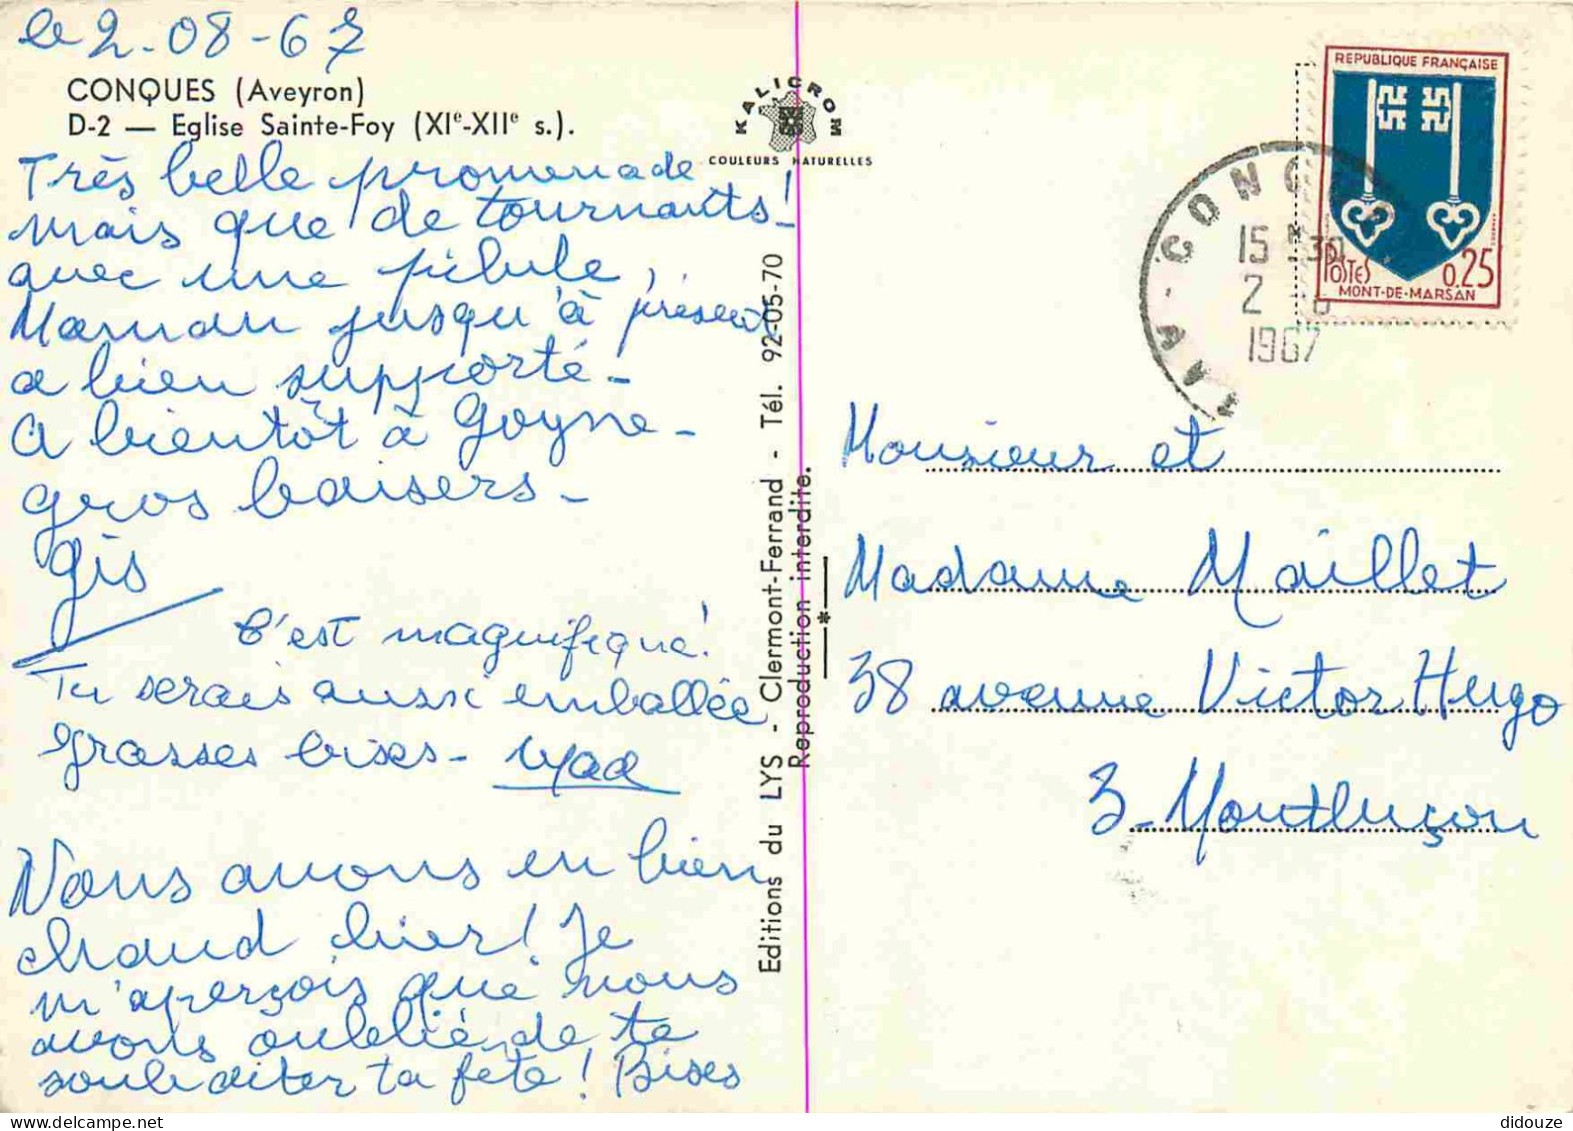 le 2-08-67
CONQUES (Aveyron)
D-2 — Eglise Sainte-Foy (XIe-XIIe s.).
Très belle promenade
mais que de tournants!
avec une pilule,
Maman jusqu'à présent
a bien supporté-
A bientôt à Goyne-
gros baisers-
gis
C'est magnifique!
Tu serais aussi emballée
grosses bises-
Nous avons eu bien
chaud hier! Je
m'aperçois que nous
avons oublié de te
souhaiter ta fête! Bises
KALICROM
COULEURS NATURELLES
Editions du LYS - Clermont-Ferrand - Tél. 92-05-70
Reproduction interdite.
REPUBLIQUE FRANÇAISE
POSTES 0.25
MONT-DE-MARSAN
CONQ
15 30
2 8
1967
Monsieur et
Madame Maillet
38 avenue Victor Hugo
3-Montluçon
didouze